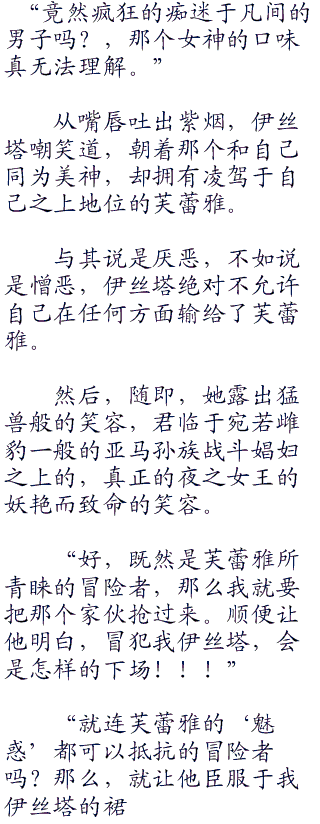 “竟然疯狂的痴迷于凡间的
男子吗？，那个女神的口味
真无法理解。”
从嘴唇吐出紫烟，伊丝
塔嘲笑道，朝着那个和自己
同为美神，却拥有凌驾于自
己之上地位的芙蕾雅。
与其说是厌恶，不如说
是憎恶，伊丝塔绝对不允许
自己在任何方面输给了芙蕾
雅。
然后，随即，她露出猛
兽般的笑容，君临于宛若雌
豹一般的亚马孙族战斗娼妇
之上的，真正的夜之女王的
妖艳而致命的笑容。
“好，既然是芙蕾雅所
青睐的冒险者，那么我就要
把那个家伙抢过来。顺便让
他明白，冒犯我伊丝塔，会
是怎样的下场！！！”
“就连芙蕾雅的‘魅
惑’都可以抵抗的冒险者
吗？那么，就让他臣服于我
伊丝塔的裙